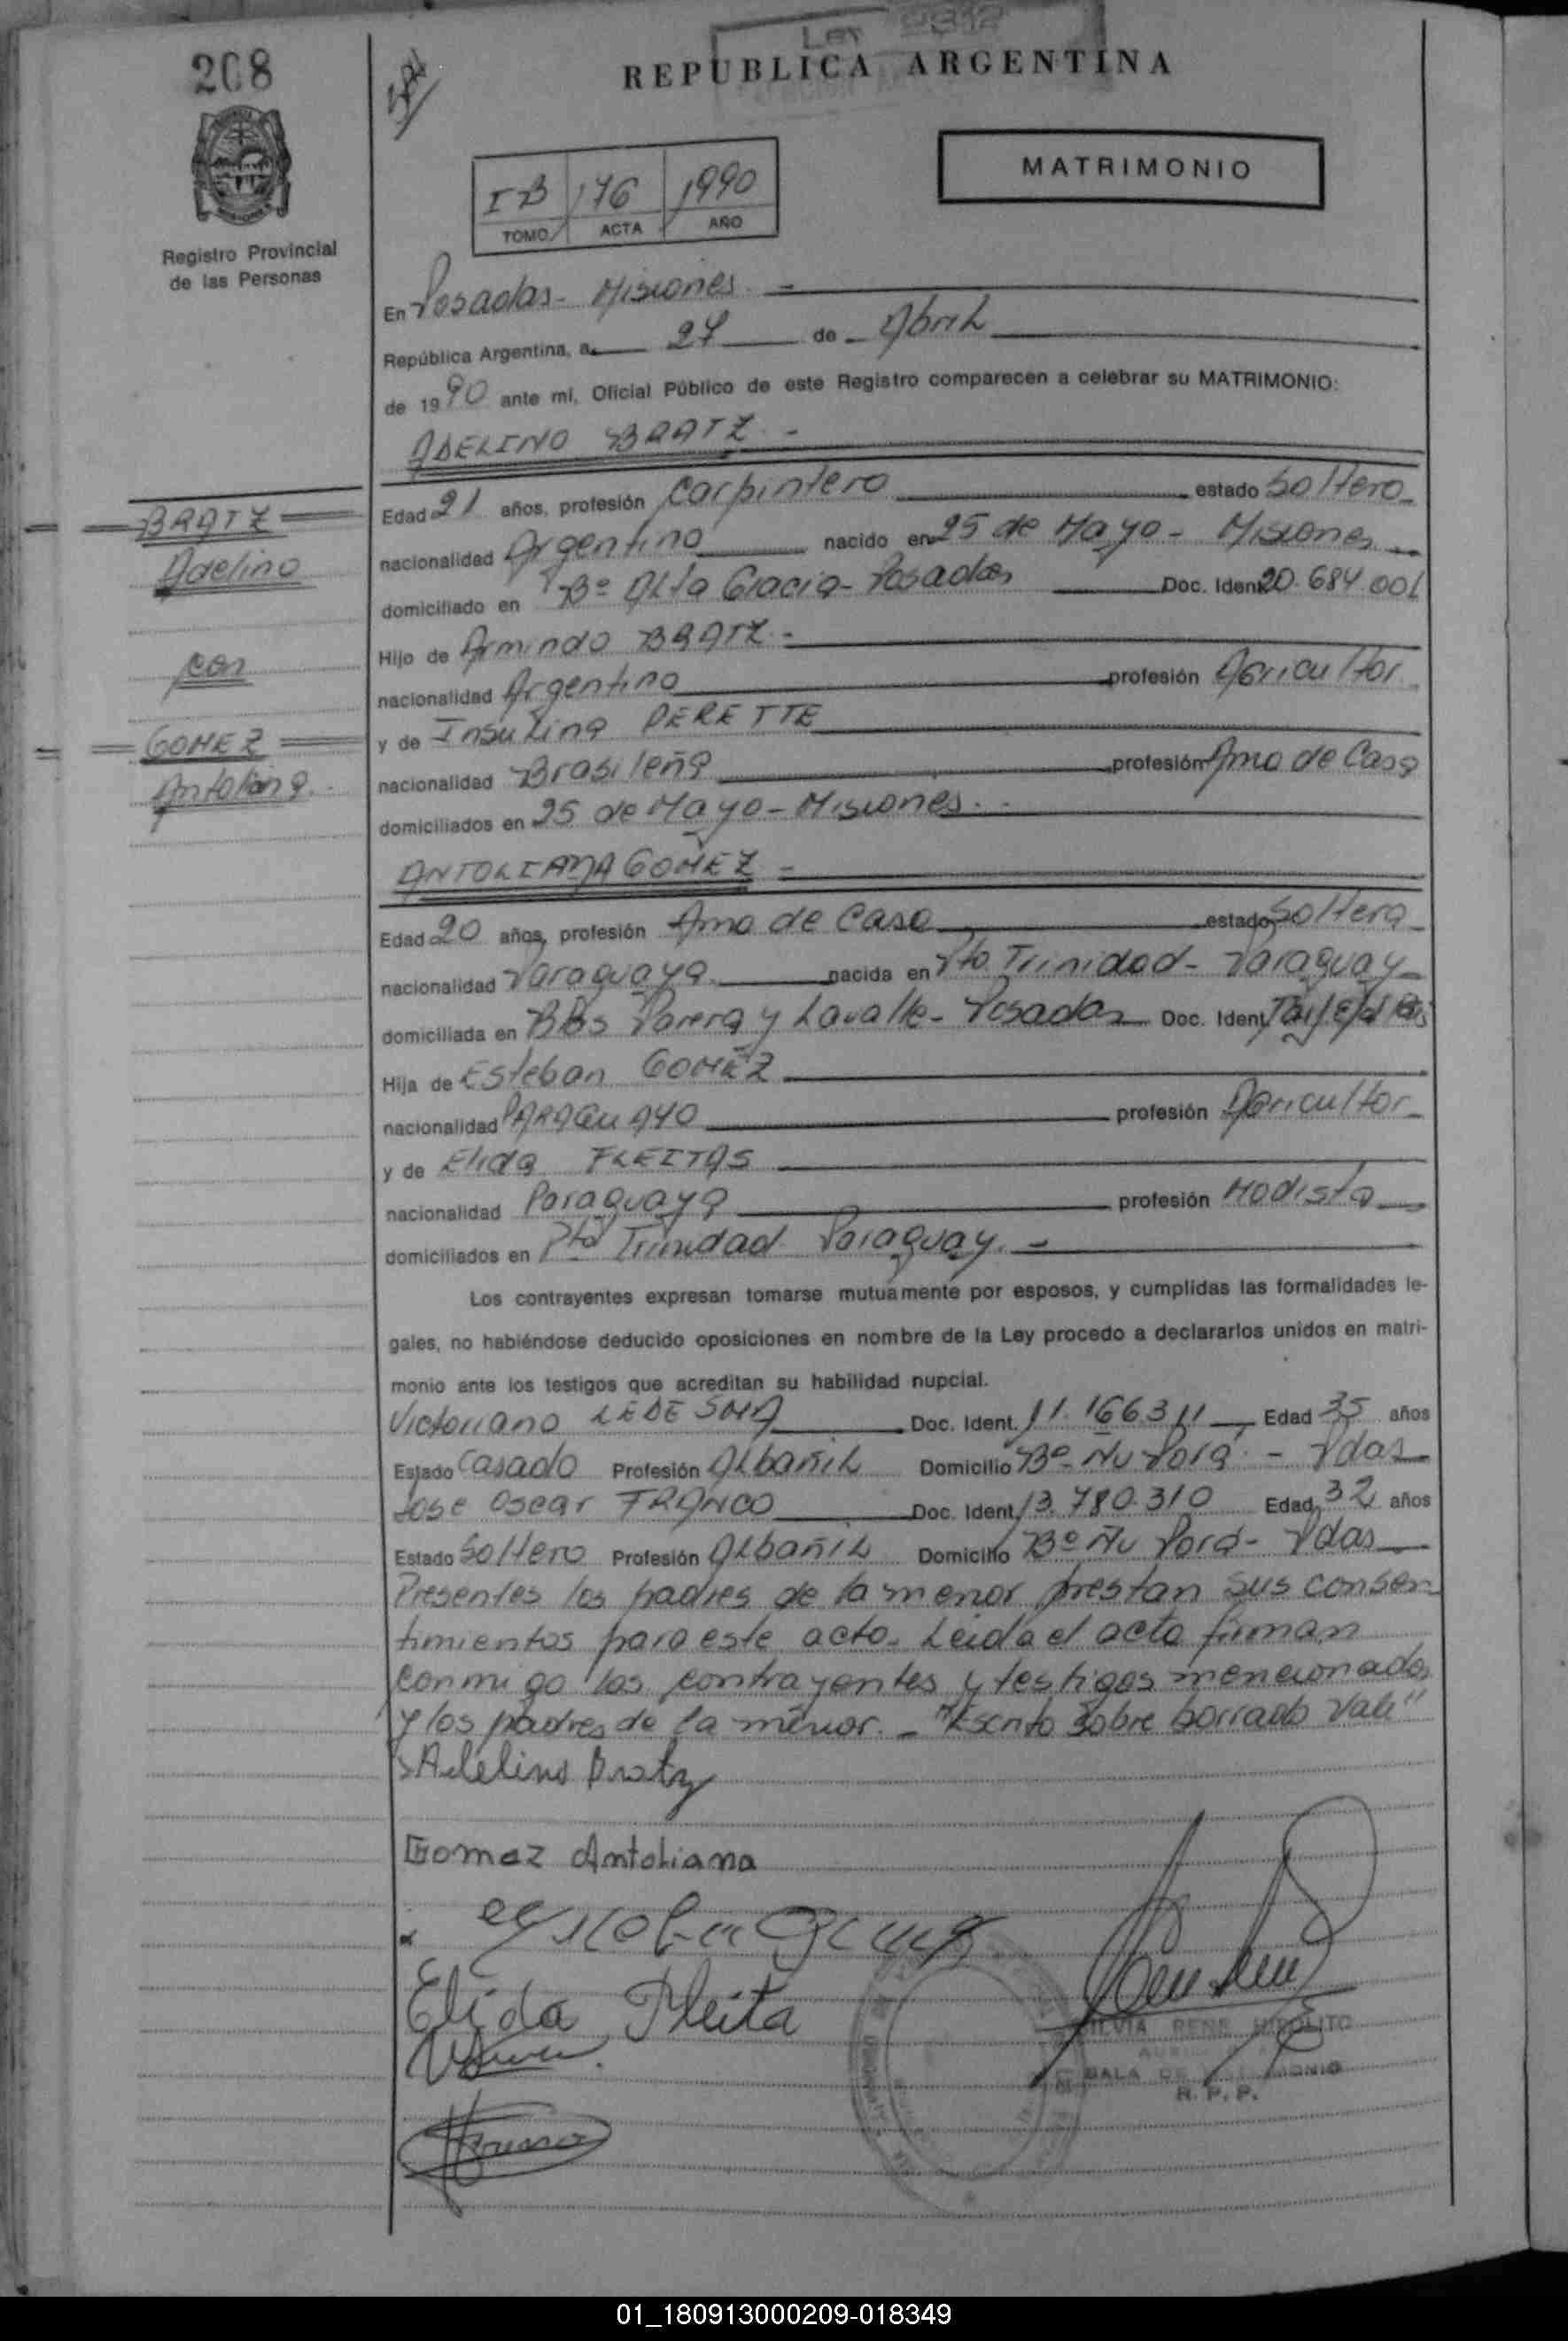 208
Ley 2312
REPUBLICA ARGENTINA
Registro Provincial
de las Personas
I-B 176 1990
TOMO ACTA AÑO
MATRIMONIO
En Posadas - Misiones. -
República Argentina, a 27 de Abril
de 1990 ante mí, Oficial Público de este Registro comparecen a celebrar su MATRIMONIO:
ADELINO BRATZ -
BRATZ
Adelino
con
GOMEZ
Antoliana.
Edad 21 años, profesión Carpintero estado Soltero
nacionalidad Argentino nacido en 25 de Mayo - Misiones
domiciliado en Bº Alta Gracia - Posadas Doc. Ident 20.684.001
Hijo de Armindo BRATZ -
nacionalidad Argentino profesión Agricultor
y de Insulina PERETTE
nacionalidad Brasileña profesión Ama de Casa
domiciliados en 25 de Mayo - Misiones. -
ANTOLIANA GOMEZ -
Edad 20 años, profesión Ama de Casa estado Soltera
nacionalidad Paraguaya nacida en Pto Trinidad - Paraguay
domiciliada en BBs Parera y Lavalle - Posadas Doc. Ident
Hija de Esteban GOMEZ
nacionalidad PARAGUAYO profesión Agricultor
y de Elida FLEITAS
nacionalidad Paraguaya profesión Modista
domiciliados en Pto Trinidad Paraguay. -
Los contrayentes expresan tomarse mutuamente por esposos, y cumplidas las formalidades le-
gales, no habiéndose deducido oposiciones en nombre de la Ley procedo a declararlos unidos en matri-
monio ante los testigos que acreditan su habilidad nupcial.
Victoriano LEDESMA Doc. Ident. 11.166.311 Edad 35 años
Estado Casado Profesión Albañil Domicilio Bº Ñu Porá - Pdas
Jose Oscar FRANCO Doc. Ident 13.780.310 Edad 32 años
Estado Soltero Profesión Albañil Domicilio Bº Ñu Porá - Pdas
Presentes los padres de la menor prestan sus consen
timientos para este acto. Leida el acta firman
conmigo los contrayentes y testigos mencionados
y los padres de la menor. - "Escrito sobre borrado Vale"
Adelino Bratz
Gomez Antoliana
Elida Fleita
SILVIA RENE HIPOLITO
SALA DE MATRIMONIO
R. P. P.
01_180913000209-018349